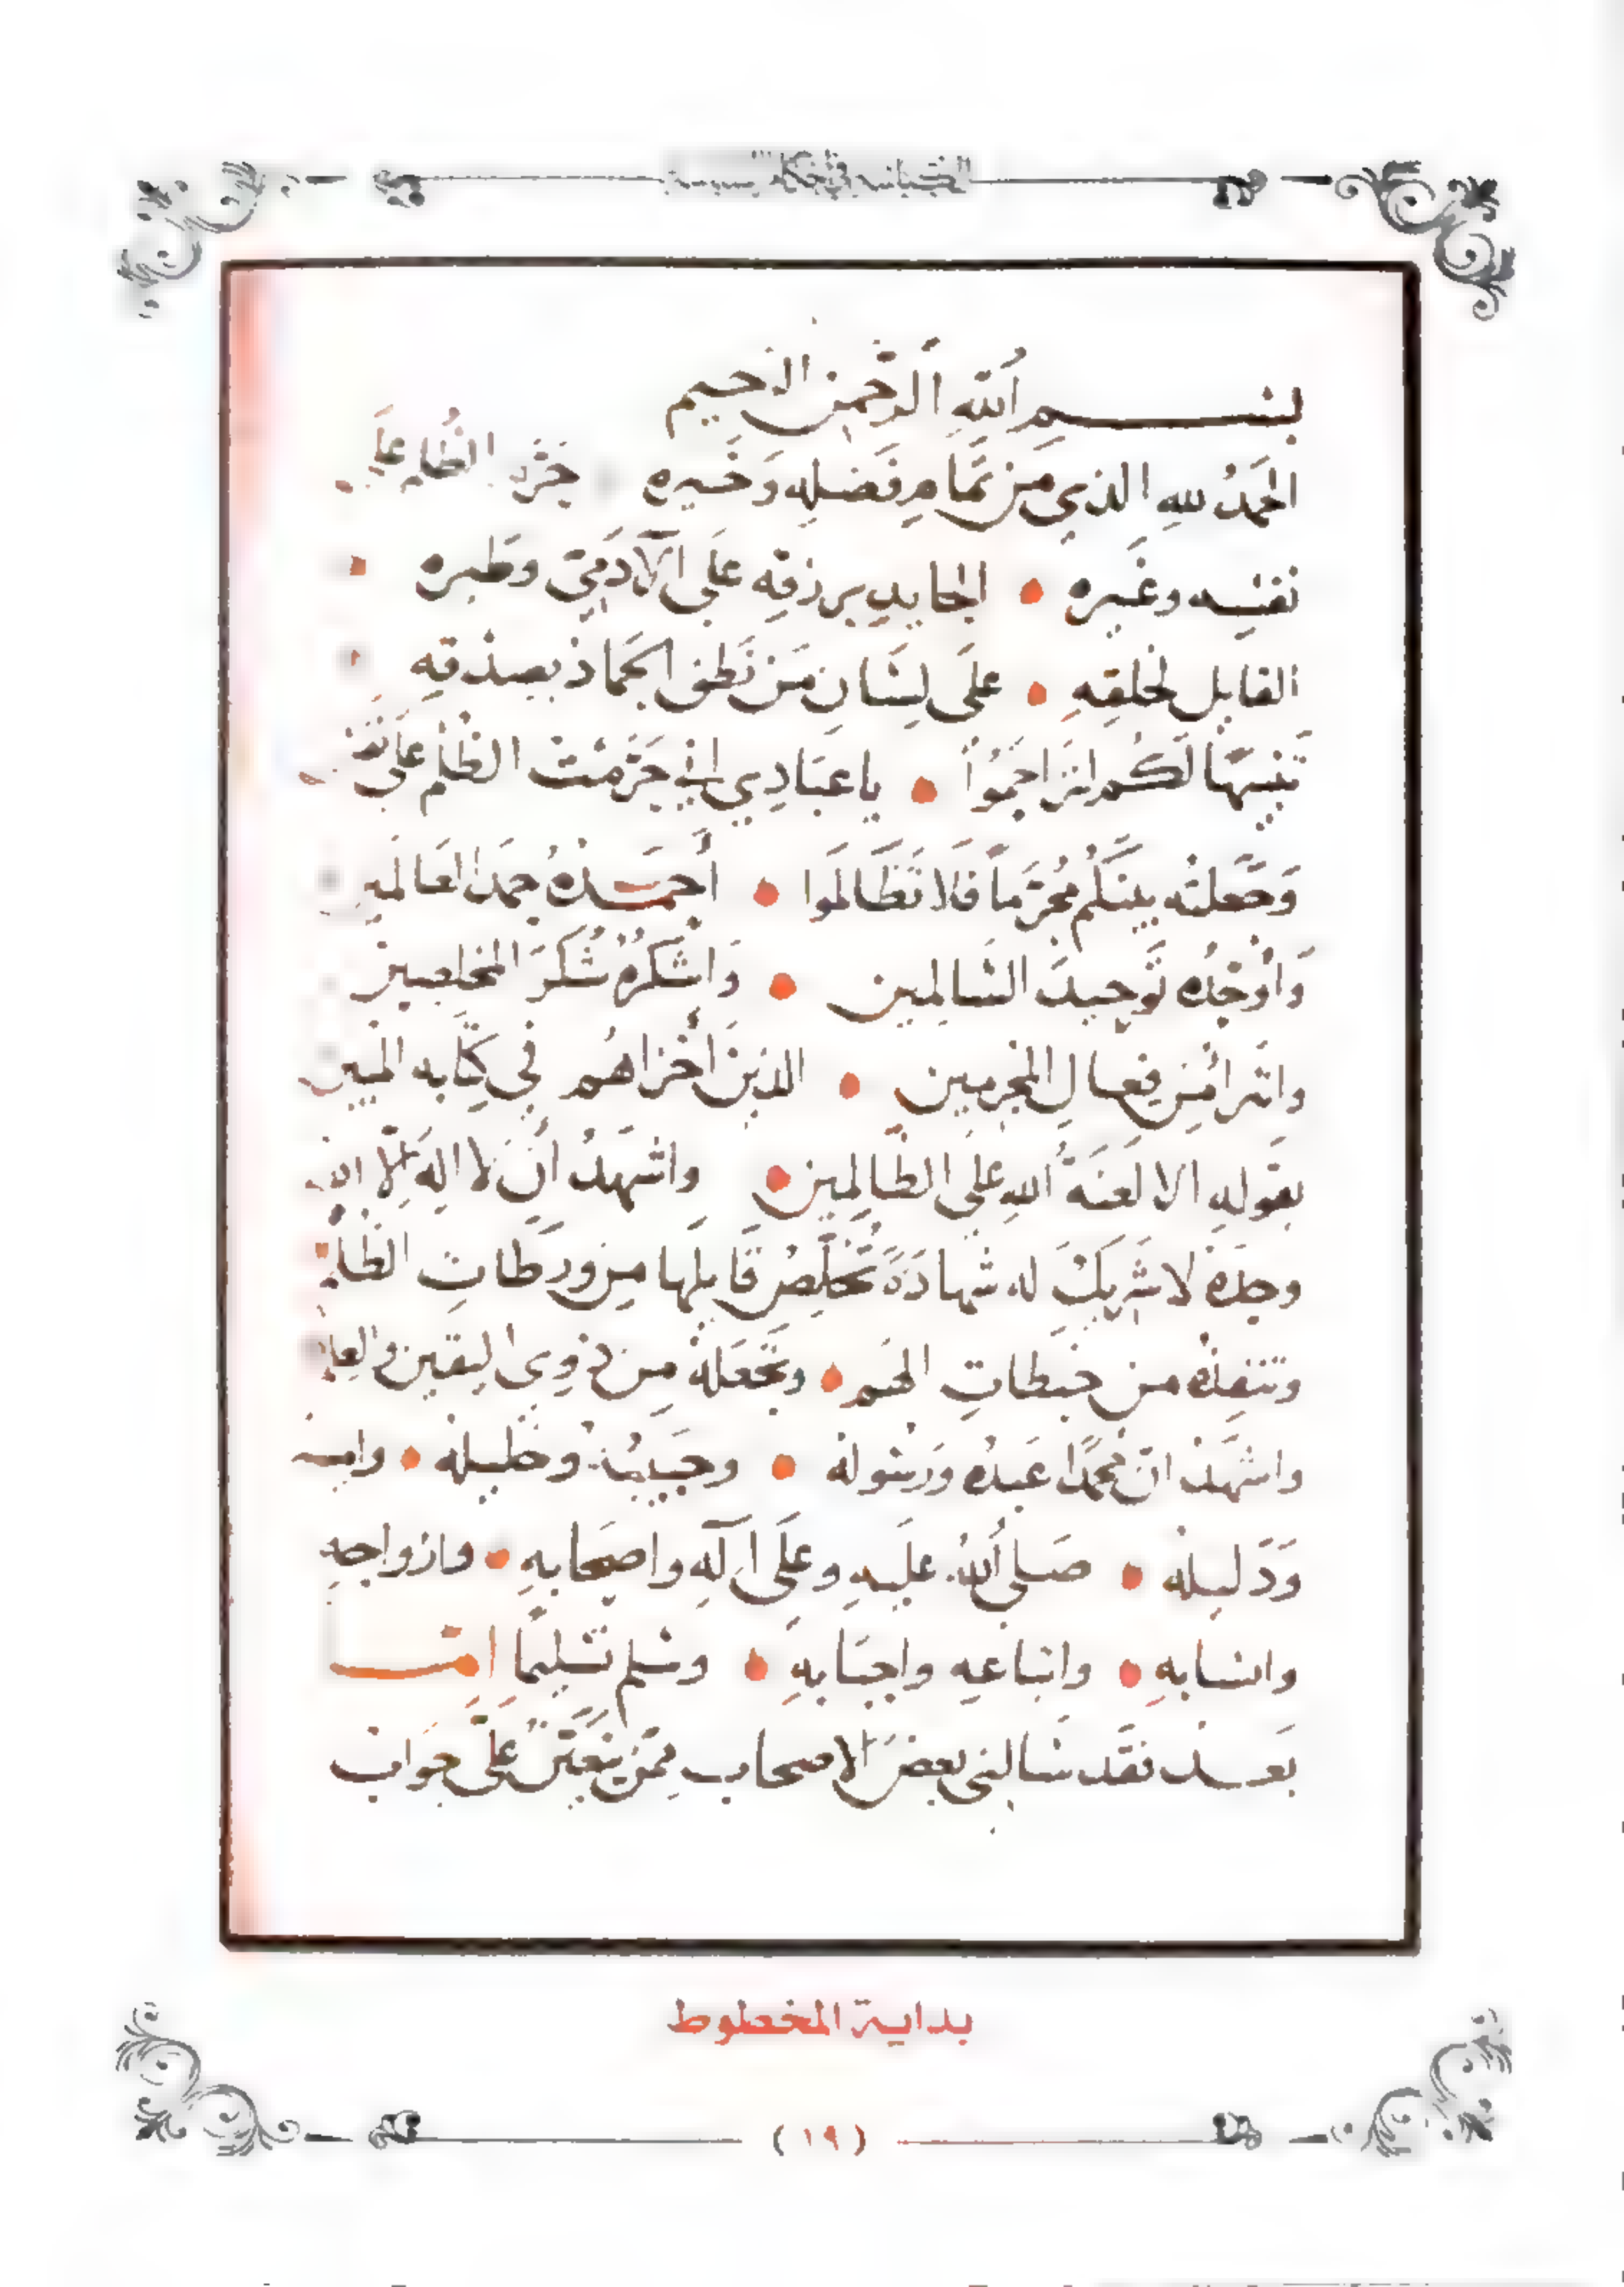 بسم اللهِ الرَّحمنِ الرحيم
الحمدُ للهِ الذي مِن تمامِ فَضلِهِ وَخَيره حَرَّم الظلم على
نفسِه وغَيره • الجايدِ برزقِه عَلى الآدَمِيّ وطيره •
القايل لخلقِهِ • علَى لِسَانِ مَن نَطق الجَماد بصدقِهِ •
تَنبيهًا لَكُم لِتَراحَمُوا • يا عبَادِي إني حَرَّمتُ الظلم على نَفسِي
وَجَعلتُه بينَكُم مُحَرَّماً فَلا تَظَالَموا • أحمَدُهُ حمدَ العَالَمين
وَأوحدُه تَوحيدَ السَالِمين • وَأشكُرهُ شُكرَ المخلصين
واتبرأ مِن فِعالِ المجرمين • الذينَ أخزاهُم في كِتابه المبين
بقولهِ الا لَعنَةُ اللهِ على الظالمين • وأشهَدُ أن لا إلهَ إلّا الله
وحدَهُ لا شَريكَ له شهادَةً تُخَلِّصُ قَايلها مِن ورطَاتِ الظلم
وتنقذه من خبطاتِ الهَم • وتجعَلهُ مِن ذوِي اليقين والعلم
واشهَد ان محمدًا عَبدُه ورَسُوله • وحَبيبُهُ وخليله • وامينه
وَدَليله • صَلى اللهُ عليهِ وعلَى آلهِ واصحابهِ • وازواجهِ
وانسابهِ • واتباعهِ واحبَابهِ • وسَلم تَسليمًا أمّا
بعد فقد سَالني بعضُ الاصحاب مِمَّن يتعَيَّن عليَّ جوابه
بداية المخطوط
( ١٩ )